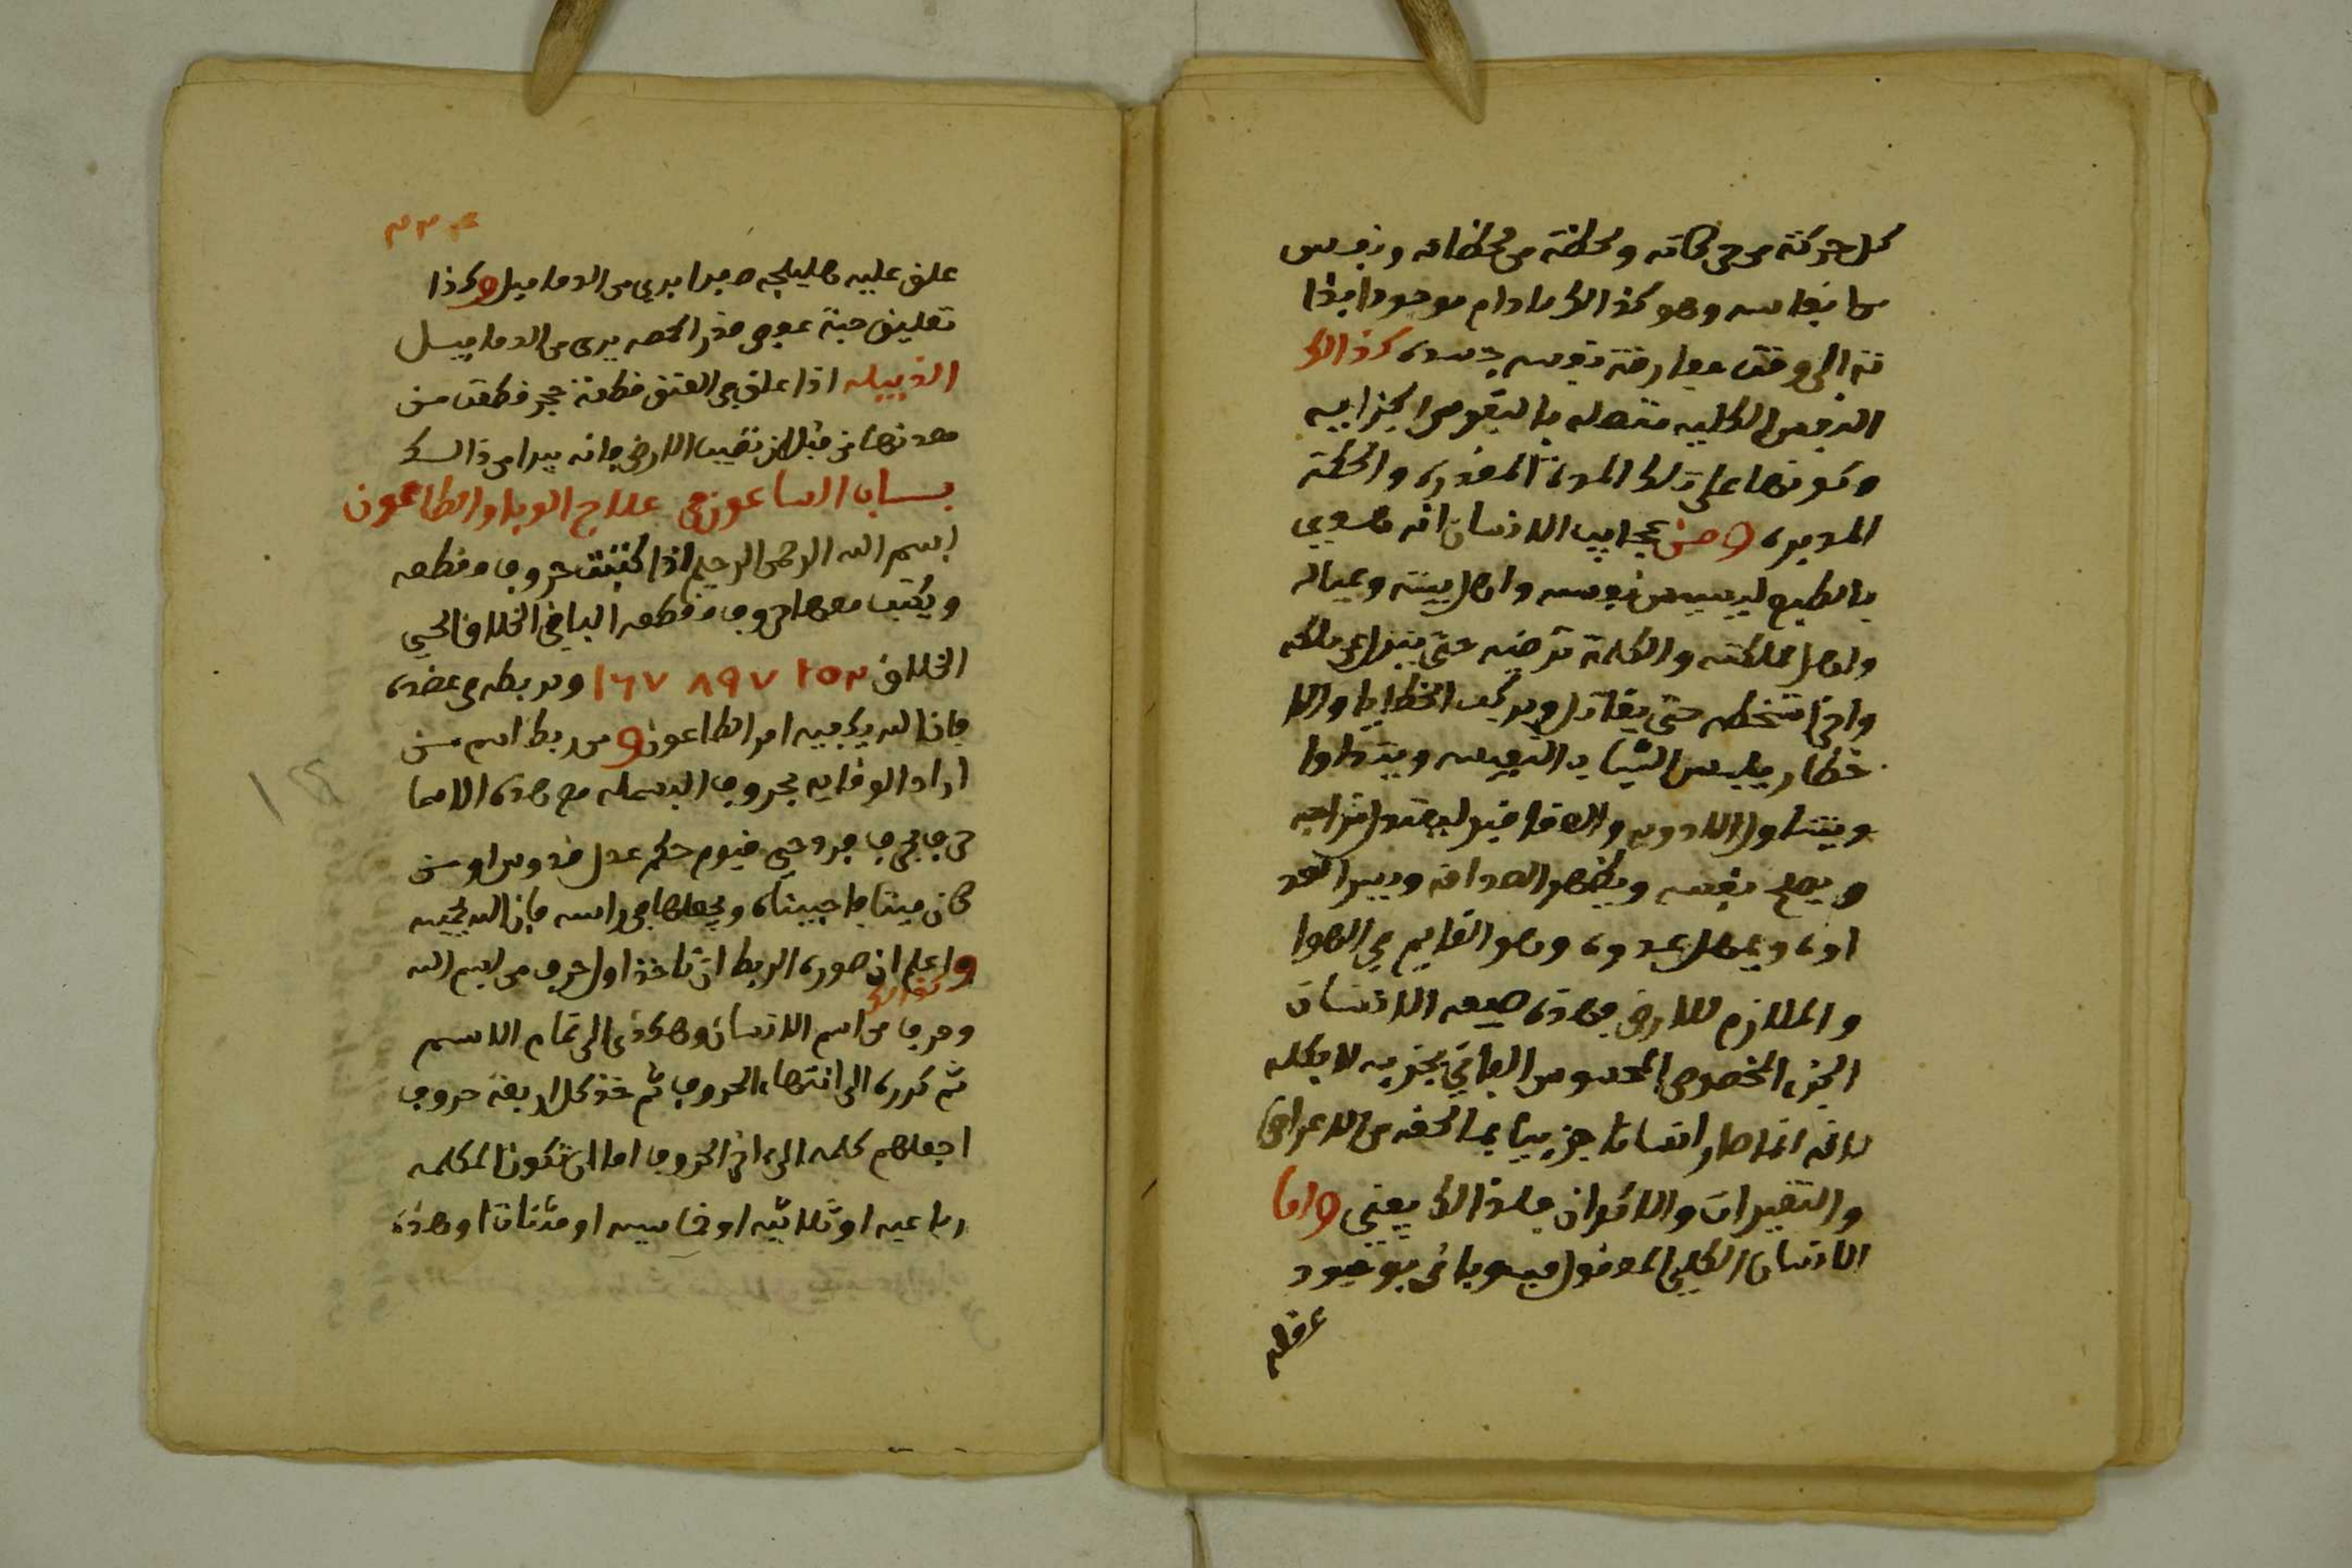 كل حركة من حركاته ولحظة من لحظاته ونفس
من انفاسه وهو كذالك ما دام موجودا بذا
ته الى وقت مفارقة نفسه جسده كذالك
النفس الكليه متصله بالنفوس الجزاييه
وكونها على تلك المدة المقدره والحكمة
المدبره ومن عجايب الانسان انه
بالطبع ليس من نفسه واهل بيته وعياله
واهل مملكته والكلمة ترضيه حتى ينزل عن ملكه
واخرا تسخطه حتى يقاتل ويركب الخطايا والا
خطار يلبس الثياب النفيسه ويتداوا
ويتناول الادويه والعقاقير ليعتدل مزاجه
ويصلح نفسه ويظهر الصداقه ويبدا لعد
اوه ويمهل عدوه وهو القايم في الهوا
والملازم للارض فهذه صيغه الانسان
الجزء المخصوص المحسوس الفاني بجزيه لا بكله
لانه انما صار انسانا جزييا بما لحقه من الاعراض
والتغييرات والاكوان فلذالك يفنى واما
الانسان الكلي المعقول فهو باقي بوجود
عقله
٣٣٤
علق عليه هليلجه صفرا يبرى من الدماميل وكذا
تعليق حبة عفص قدر الحمصه يبرى من الدماميل
الدبيله اذا علق في العنق قطعة حجر قطعت من
معدنها من قبل ان تصيب الارض فانه يبرا من ذالك
بساب الساعون في علاج الوبا والطاعون
بسم الله الرحمن الرحيم اذا كتبت حروف مقطعه
ويكتب معها حروف مقطعه الباقي الخلاق الحي
الخلاق ٢٥٣ ٨٩٧ ١٦٧ وربطه في عضده
فان الله يكفيه امر الطاعون ومن ربط اسم من
اراد الوقايه بحروف البسمله مع هذه الاسما
حرف بحرف فرد حي قيوم حكم عدل قدوس او من
كان ميتا فاحييناه ويجعلها في راسه فان الله يحييه
واعلم ان صوره الربط ان تاخذ اول حرف من بسم الله
كذالك
وحرف من اسم الانسان وهكذى الى تمام الاسم
ثم كرره الى انتهاء الحروف ثم خذ كل اربعة حروف
اجعلهم كلمه الى اخر الحروف اما ان تكون الكلمه
رباعيه او ثلاثيه او خماسيه او مثناة او هذه